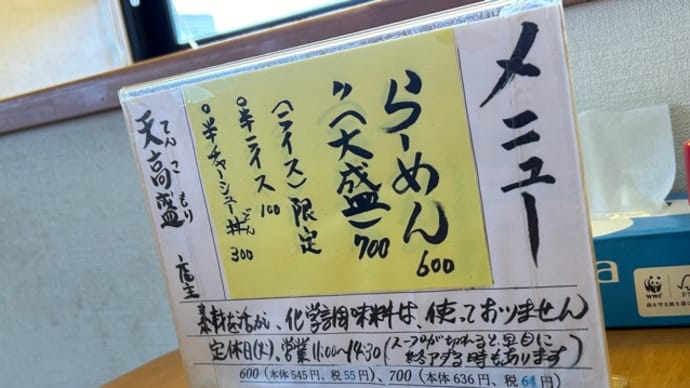 メニュー
らーめん 600
〃(大盛) 700
(ライス)限定
○半ライス 100
○半チャーシュー丼 300
どん
天高盛
てんこもり
店主
素材を活かし、化学調味料は、使っておりません
定休日(火)、営業11:00~14:30(スープが切れると早目に
終了する時もあります)
600(本体545円、税55円)、700(本体636円、税64円)
WWF
a